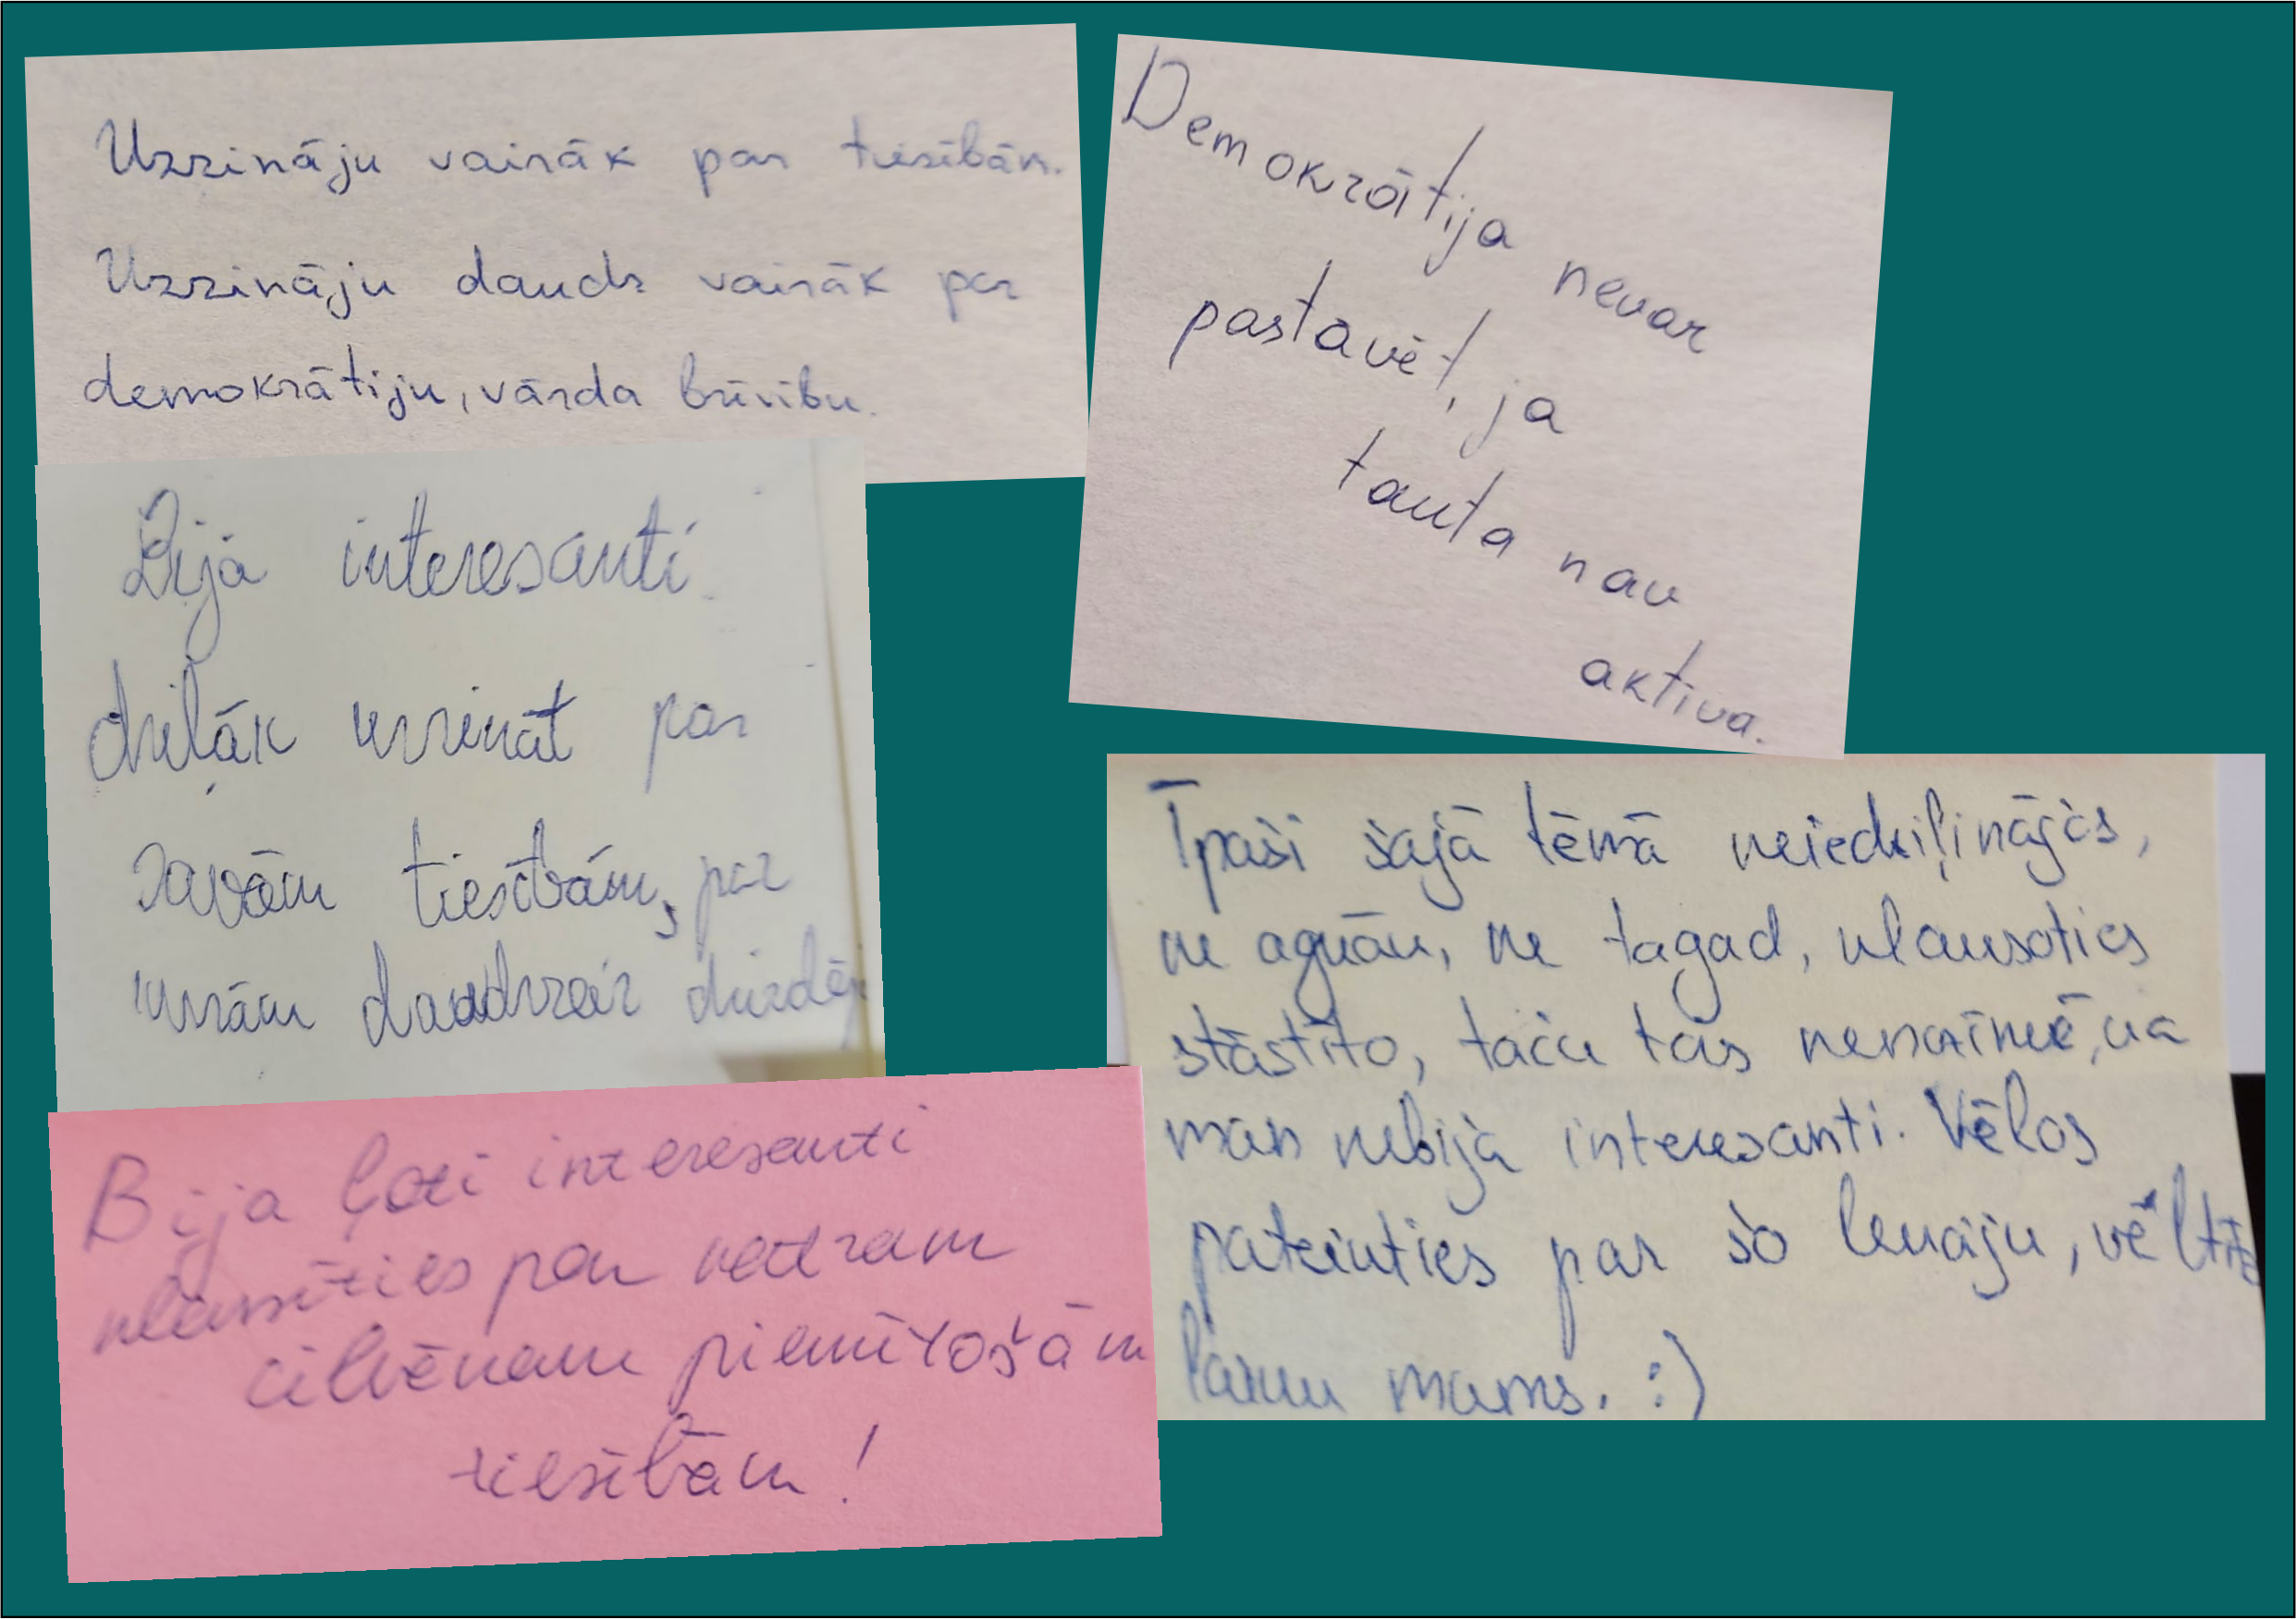 Uzzināju vairāk par tiesībām.
Uzzināju daudz vairāk par
demokrātiju, vārda brīvību.
Demokrātija nevar
pastāvēt, ja
tauta nav
aktīva.
Bija interesanti
dziļāk uzzināt par
savām tiesībām, par
kurām daudzreiz dzirdēj
Īpaši šajā tēmā neiedziļinājos,
ne agrāk, ne tagad, klausoties
stāstīto, taču tas nenozīmē, ka
man nebija interesanti. Vēlos
pateikties par šo lekciju, vēltīto
laiku mums. :)
Bija ļoti interesanti
klausīties par katram
cilvēkam piemītošām
tiesībām!